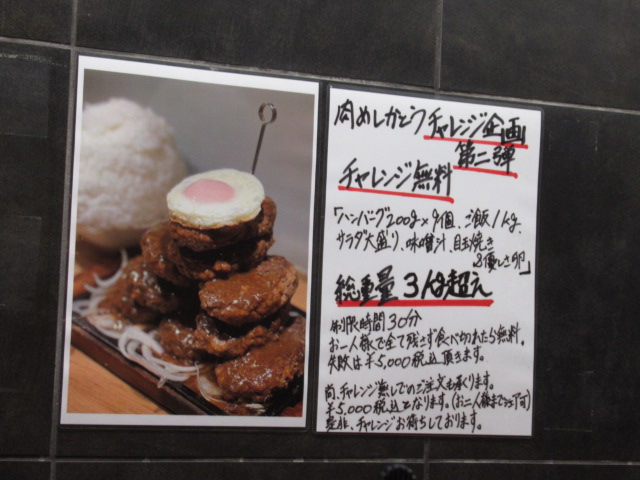 肉めしかとうチャレンジ企画
第二弾
チャレンジ無料
「ハンバーグ200g×9個、ご飯1kg、
サラダ大盛り、味噌汁、目玉焼き
&優しさ卵」
総重量 3kg超え
制限時間30分
お一人様で全て残さず食べ切れたら無料。
失敗は¥5,000税込頂きます。
尚、チャレンジ無しでのご注文も承ります。
¥5,000税込となります。(お二人様までシェア可)
是非、チャレンジお待ちしております。